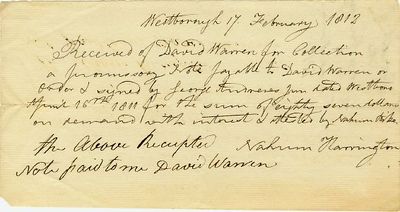 Westborough 17 February 1812
Received of David Warren for Collection
a promissory Note payable to David Warren or
order & signed by George Andrews Jun dated Westboro
April 10th 1811 for the sum of eighty seven dollars
on demand with interest & attested by Nahum
the Above Receipted Nahum Harrington
Note paid to me David Warren